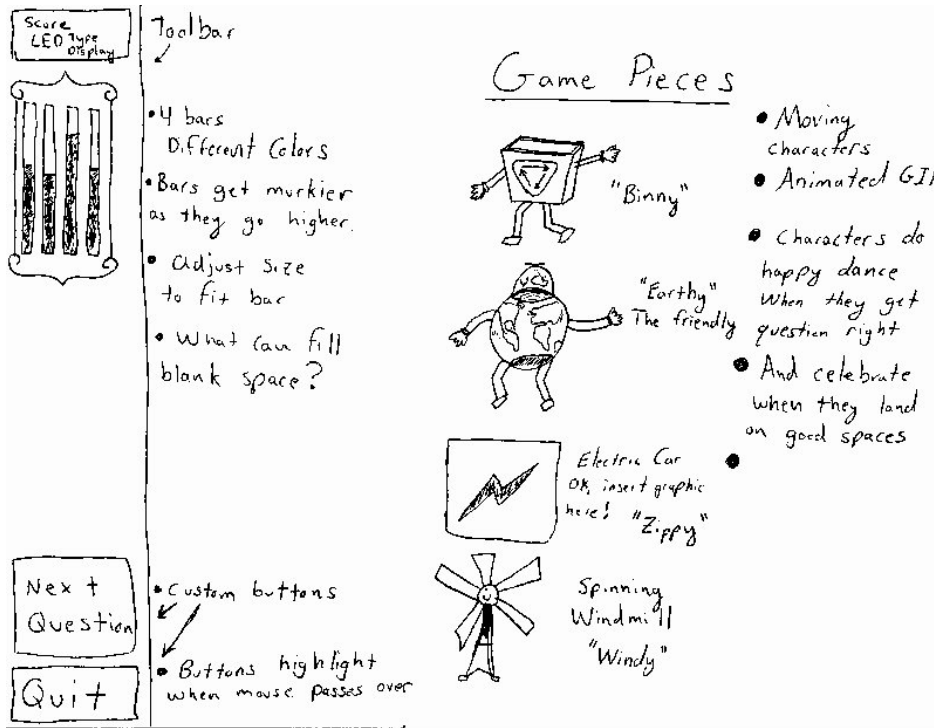 Score
LED Type
Display
Toolbar
• 4 bars
Different Colors
• Bars get murkier
as they go higher.
• Adjust size
to fit bar
• What can fill
blank space?
Next
Question
Quit
• Custom buttons
• Buttons highlight
when mouse passes over
Game Pieces
"Binny"
"Earthy"
The friendly
Electric Car
OK, insert graphic
here!
"Zippy"
Spinning
Windmill
"Windy"
• Moving
characters
• Animated GIF
• Characters do
happy dance
When they get
question right
• And celebrate
when they land
on good spaces
•